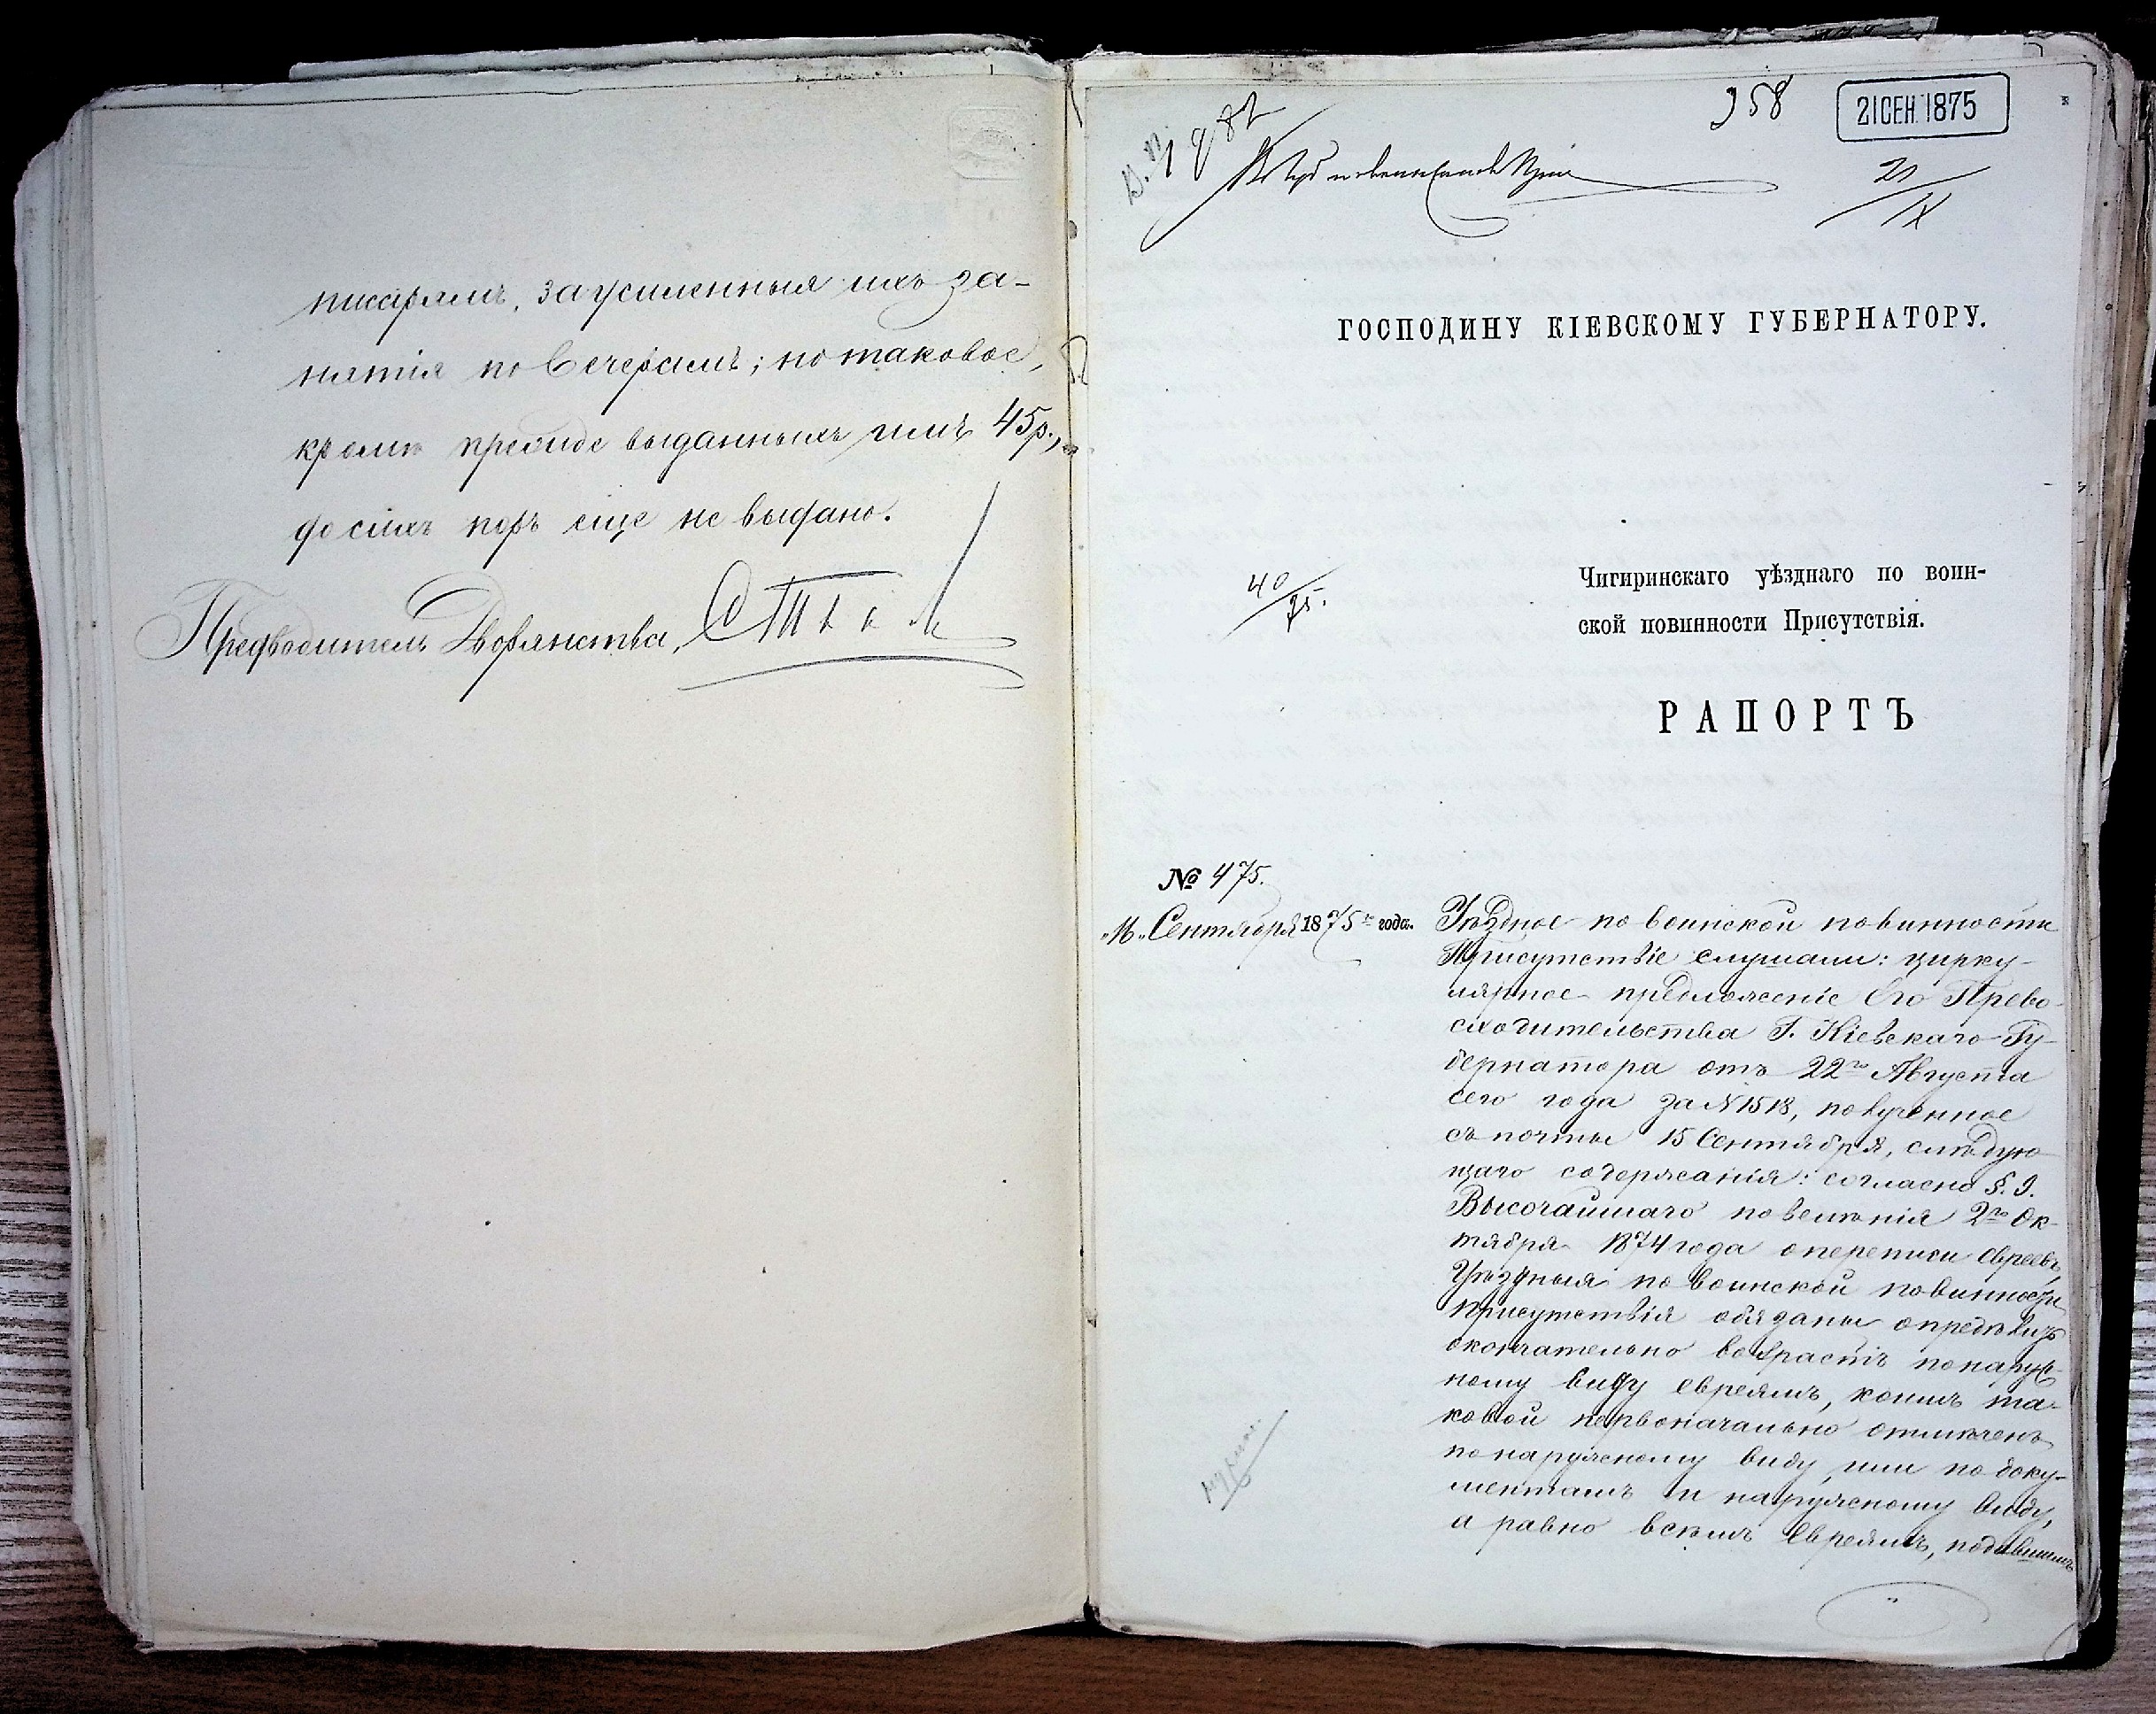 писарямъ, за усиленныя ихъ за-
нятія по вечерамъ; но таковое,
кромѣ прежде выданныхъ имъ 45 р.,
до сихъ поръ еще не выдано.
Предводитель Дворянства,
358
21 СЕН. 1875
21/IX
ГОСПОДИНУ КІЕВСКОМУ ГУБЕРНАТОРУ.
40/75.
Чигиринскаго уѣзднаго по воин-
ской повинности Присутствія.
РАПОРТЪ
№ 475.
"16" Сентября 1875 го года.
Уѣздное по воинской повинности
Присутствіе слушали: цирку-
лярное предложеніе Его Прево-
сходительства Г. Кіевскаго Гу-
бернатора отъ 22го Августа
сего года за N 1518, полученное
съ почты 15 Сентября, слѣдую-
щаго содержанія: согласно §. 9.
Высочайшаго повелѣнія 2го Ок-
тября 1874 года о переписи евреевъ,
Уѣздныя по воинской повинности
Присутствія обязаны опредѣлить
окончательно возрастъ по наруж-
ному виду евреямъ, коимъ та-
ковой первоначально отмѣченъ
по наружному виду, или по доку-
ментамъ и наружному виду,
а равно всѣмъ Евреямъ, подавшимъ